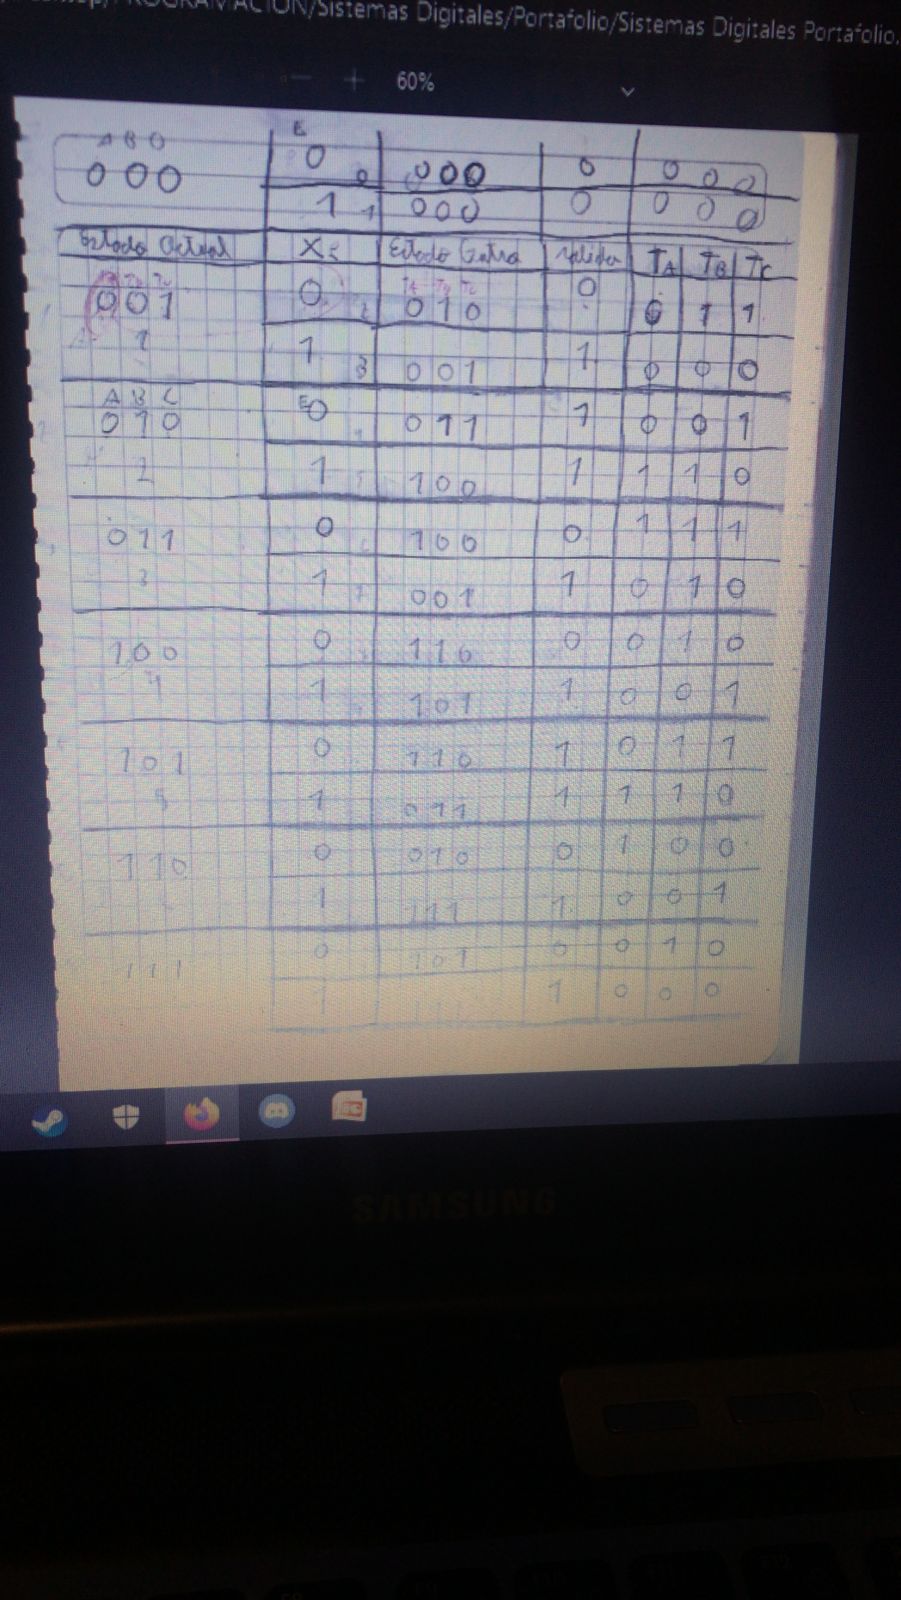 /PROGRAMACION/Sistemas Digitales/Portafolio/Sistemas Digitales Portafolio.
− + 60%
A B C E
000 0 0 000 0 0 0 0
1 1 000 0 0 0 0
Estado Actual X Estado Salida TA TB TC
TA TB TC
001 0 2 010 0 0 1 1
1 1 3 001 1 0 0 0
A B C E
010 0 011 1 0 0 1
2 1 100 1 1 1 0
011 0 100 0 1 1 1
3 1 001 1 0 1 0
100 0 110 0 0 1 0
4 1 101 1 0 0 1
101 0 110 1 0 1 1
5 1 011 1 1 1 0
110 0 010 0 1 0 0
1 111 1 0 0 1
111 0 101 0 0 1 0
1 1 0 0 0
SAMSUNG